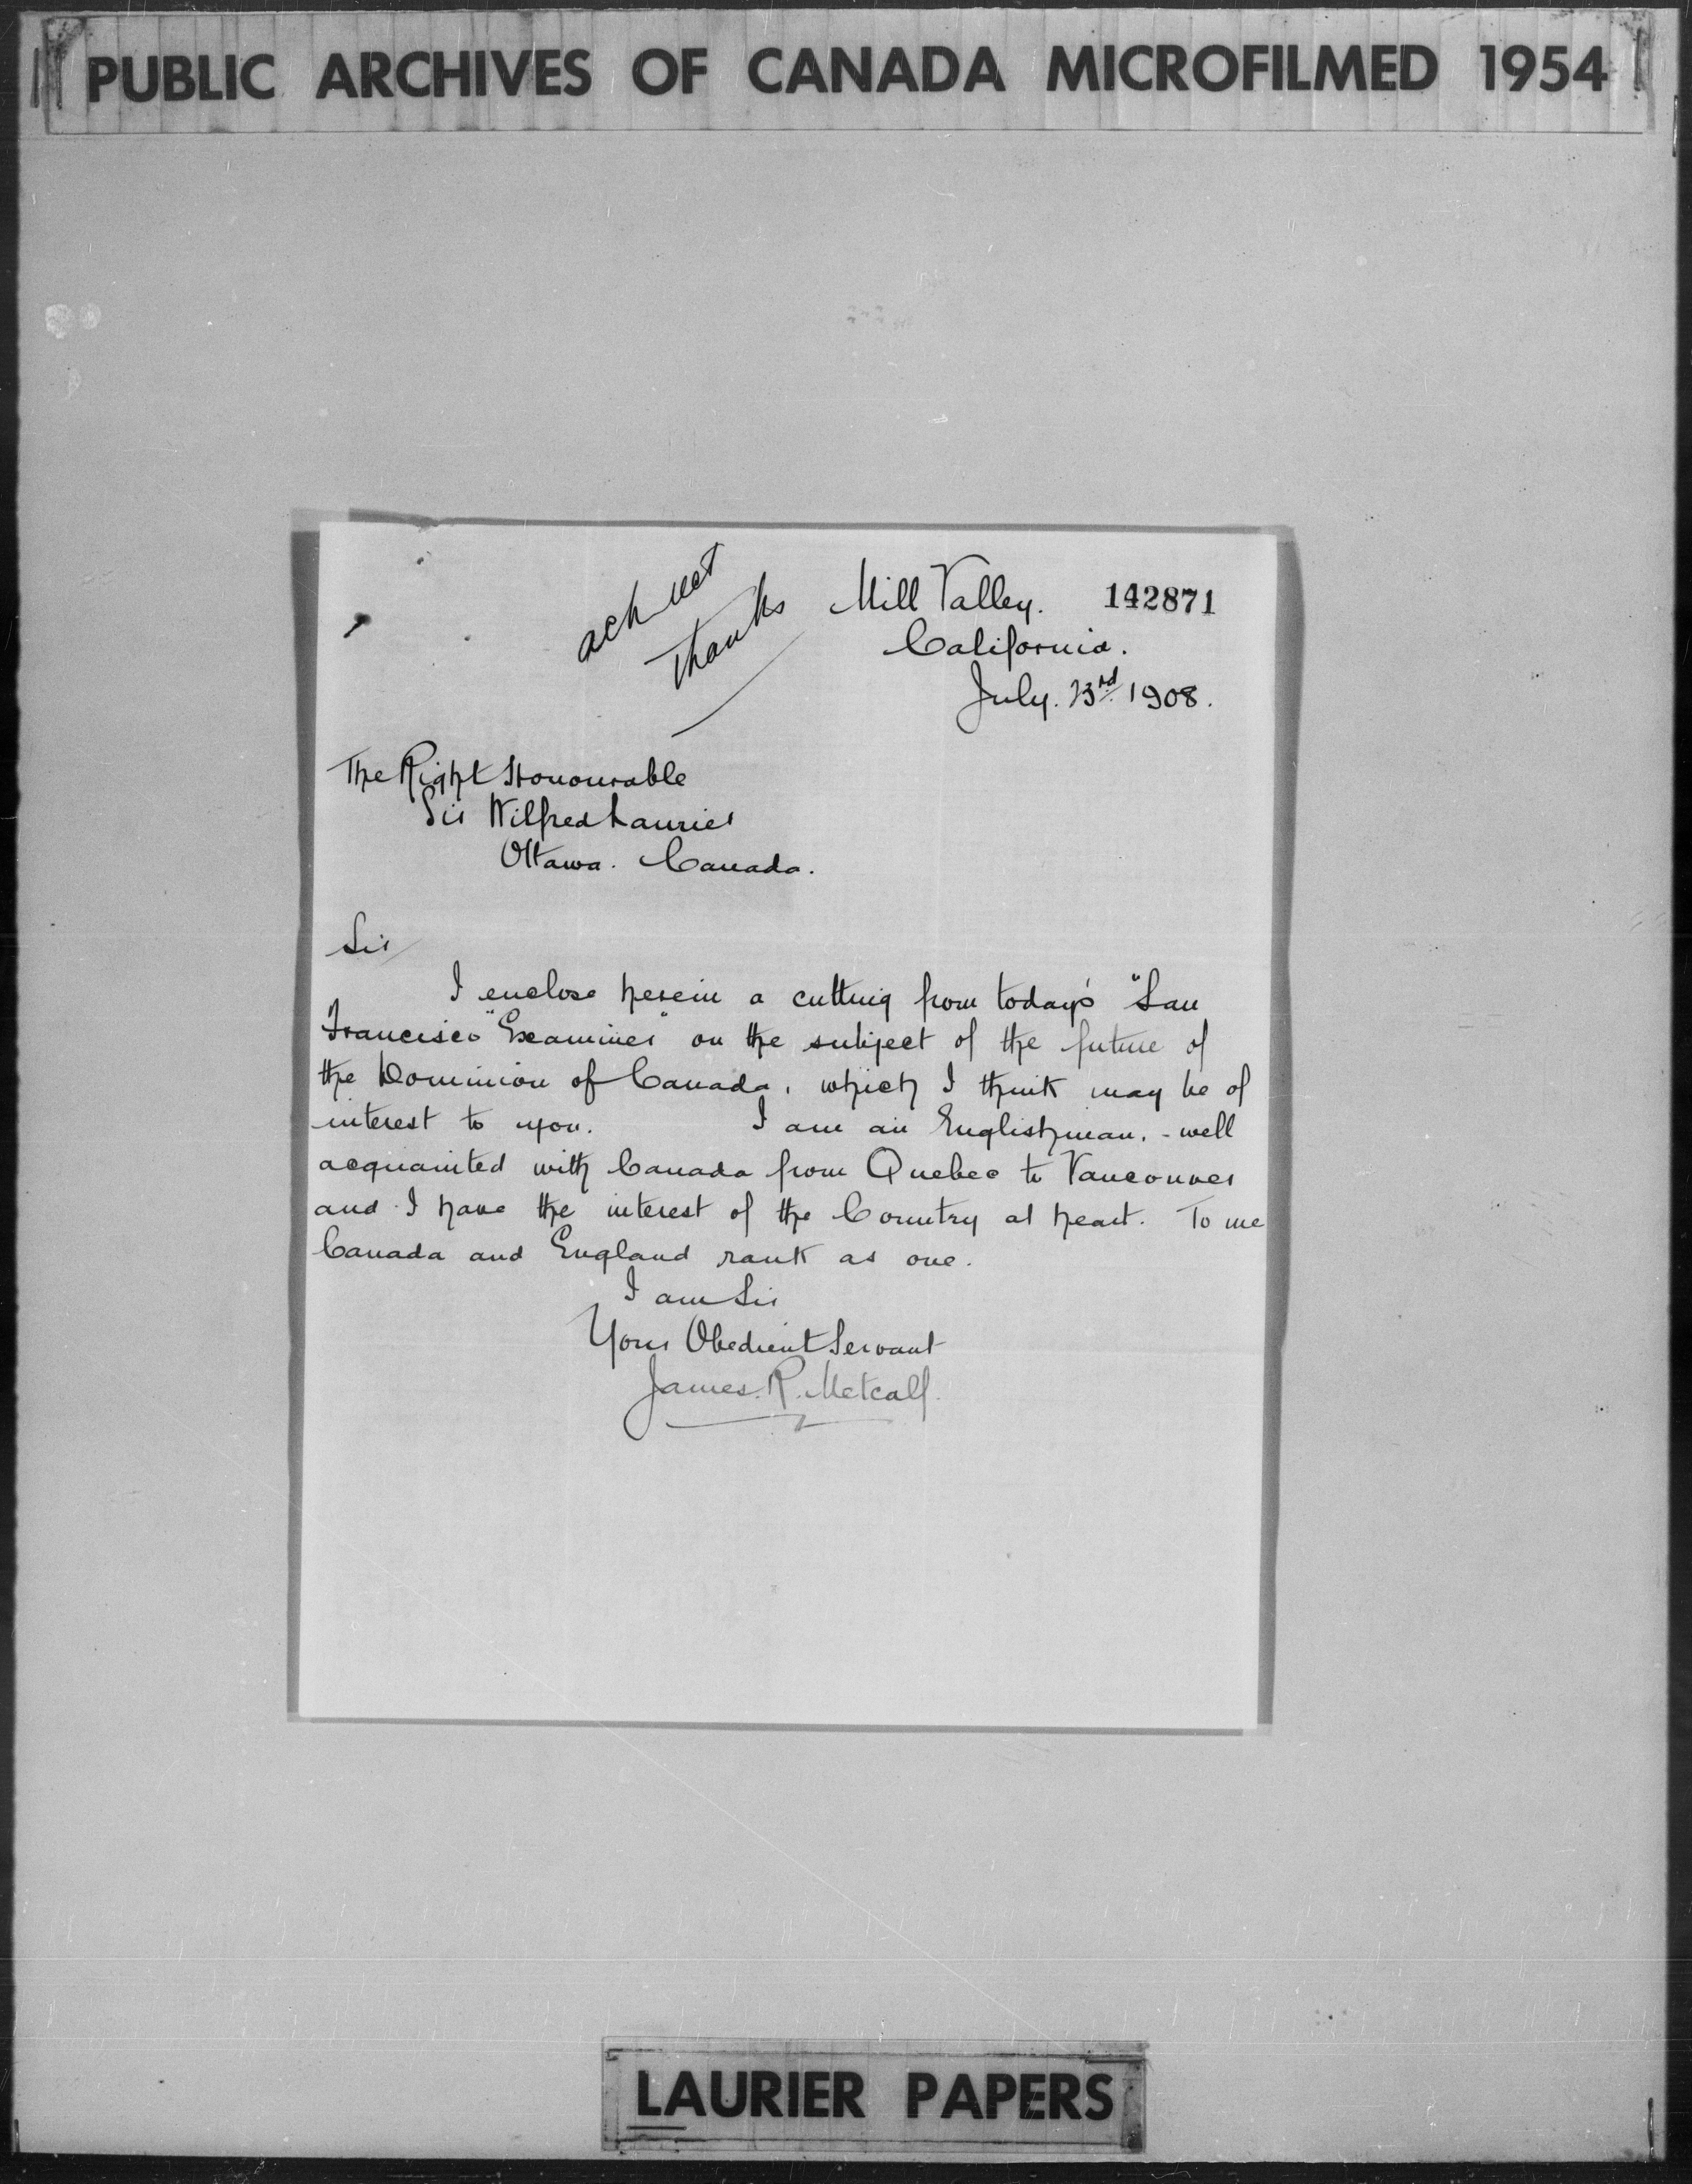 PUBLIC ARCHIVES OF CANADA MICROFILMED 1954
ack
thanks
Mill Valley. 142871
California.
July. 23rd 1908.
The Right Honourable
Sir Wilfred Laurier
Ottawa. Canada.
Sir
I enclose herein a cutting from today's "San
Francisco "Examiner" on the subject of the future of
the Dominion of Canada, which I think may be of
interest to you. I am an Englishman, - well
acquainted with Canada from Quebec to Vancouver
and I have the interest of the Country at heart. To me
Canada and England rank as one.
I am Sir
Your Obedient Servant
James. R. Metcalf.
LAURIER PAPERS